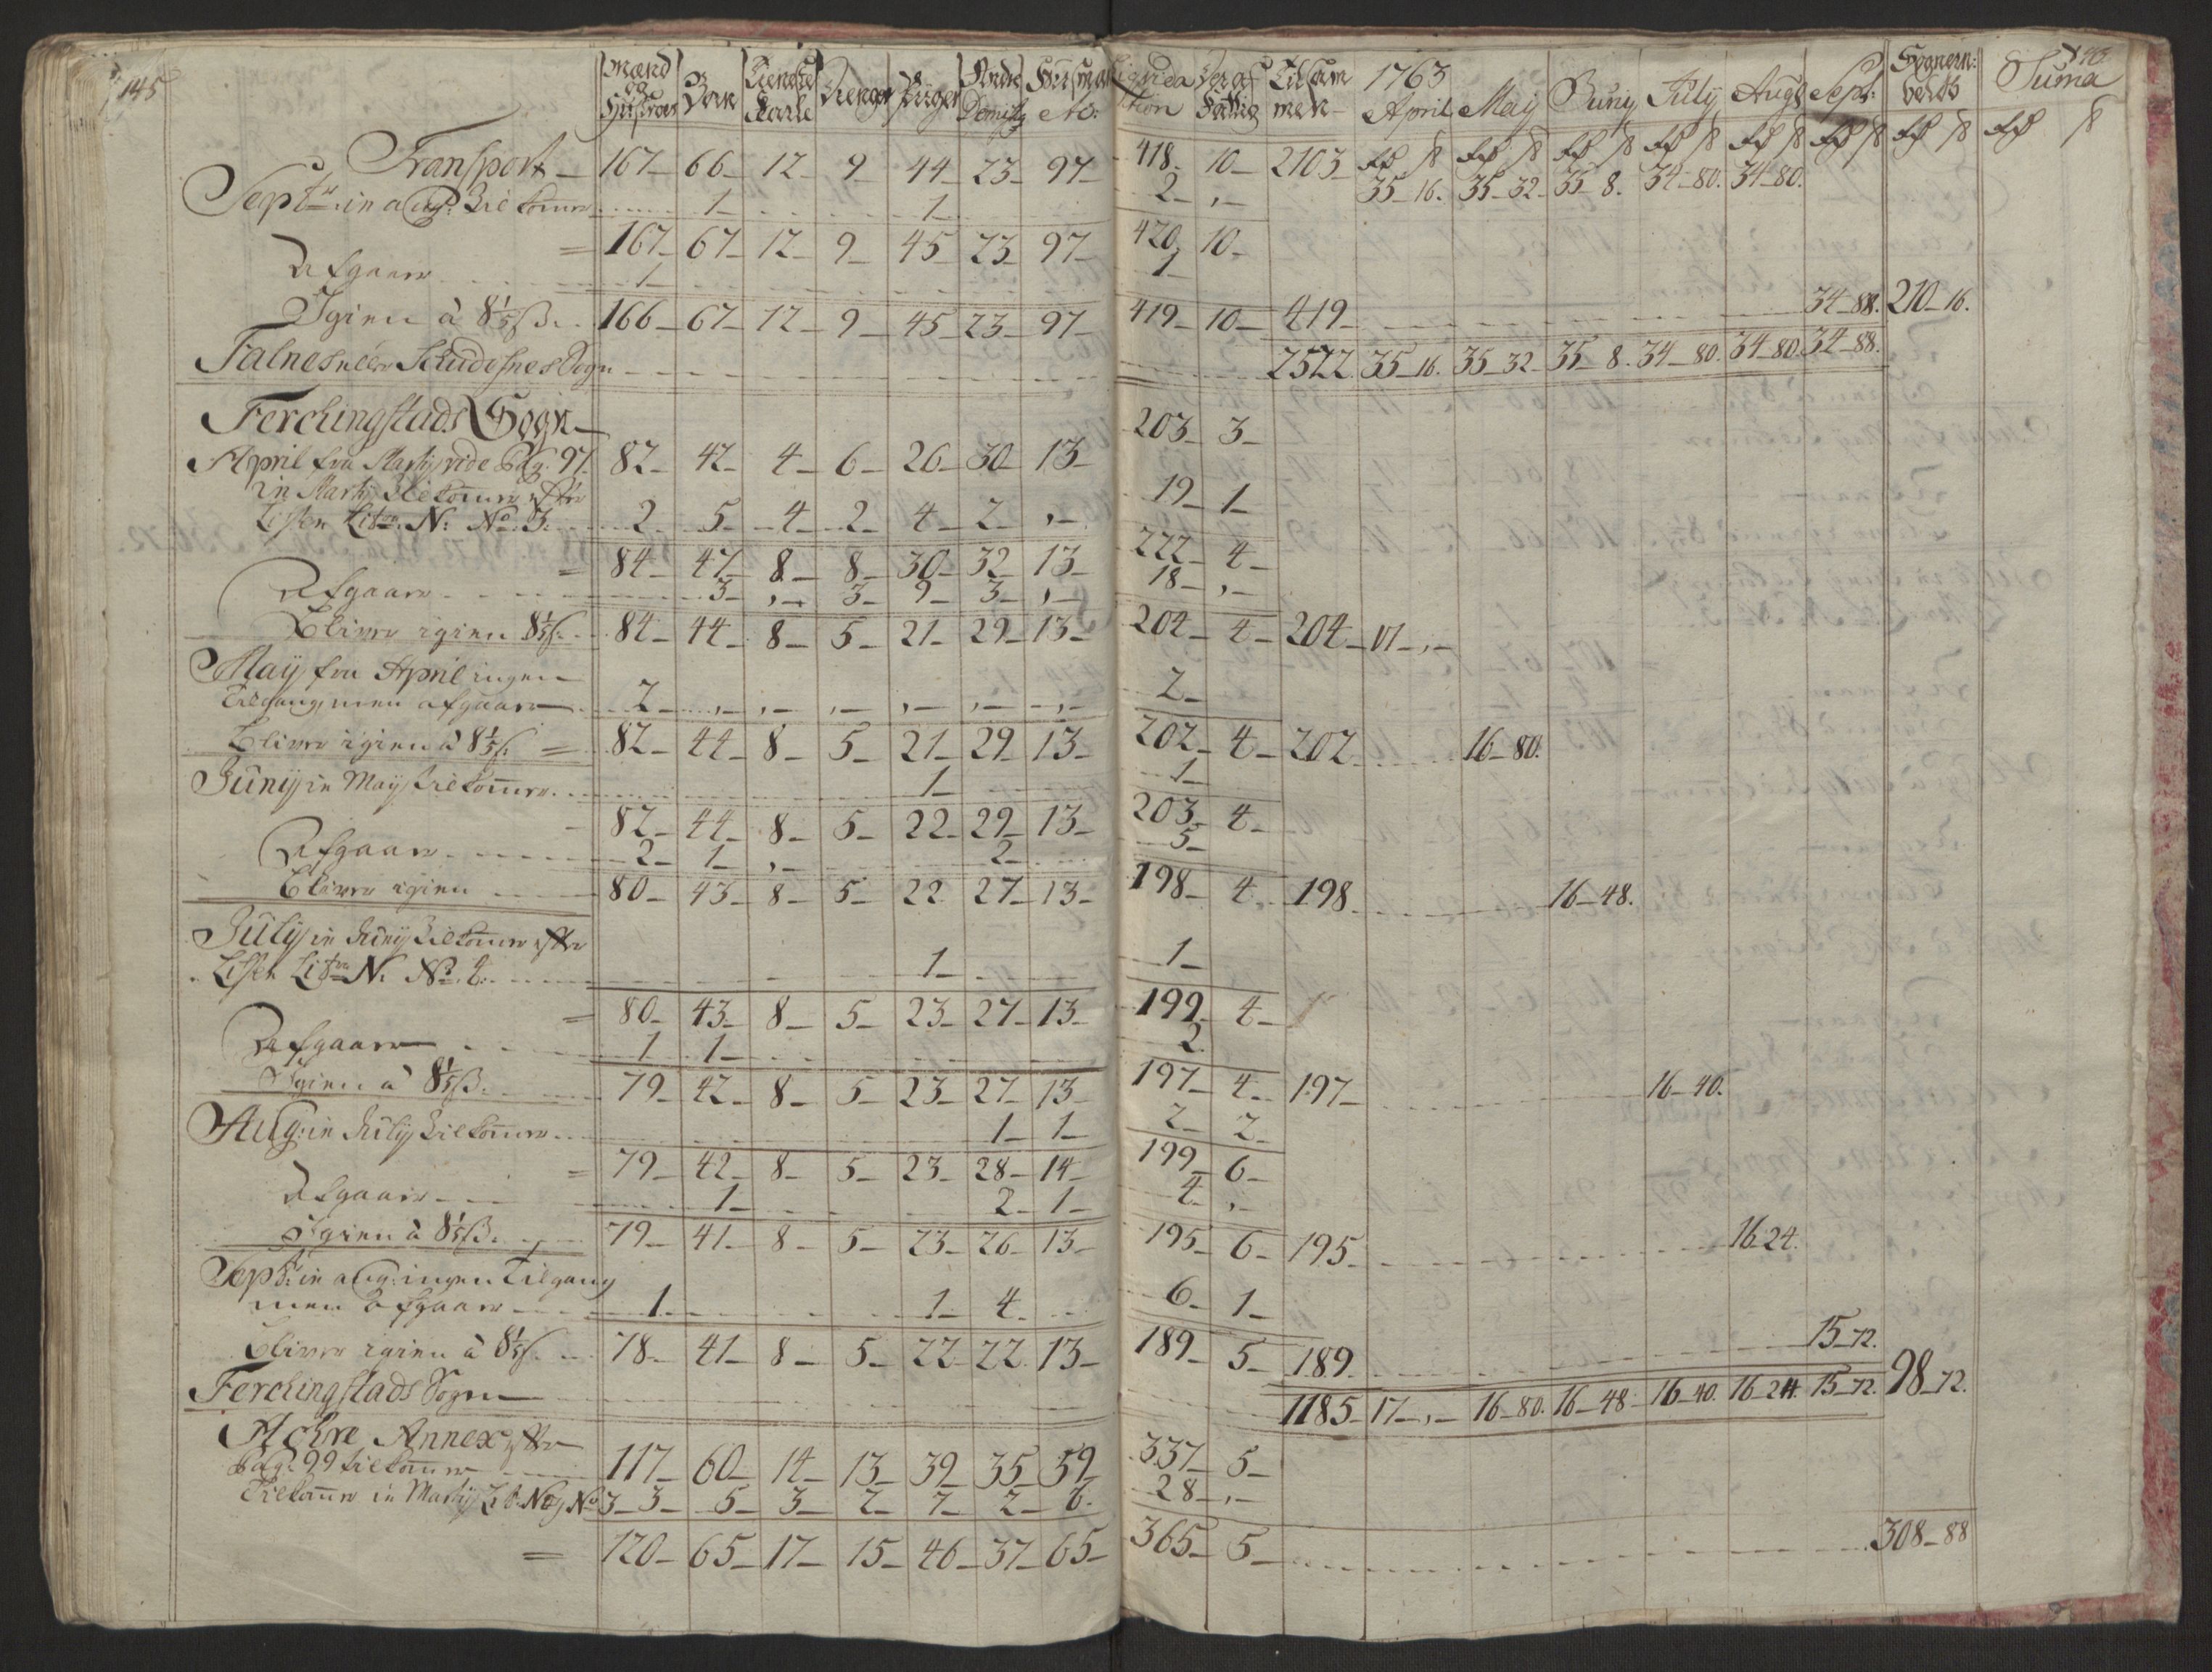 145
Mænd og Hustruer Børn Tieneste Karle Drenge Piiger Andre Domistiq Huusmænd No: Liqvidation Heraf Fattig Tilsammen 1763 April Maij Junij Julij Augs Sept: Sognernes beløb Suma
Transport 167 66 12 9 44 23 97 418 10 2103 35-16. 35-32 35-8. 34-80. 34-80.
Septbr: in aug: Tilkomer 1 1 2 ,
= 167 67 12 9 45 23 97 420 10
Afgaaer 1 1
Igien à 8 1/5 ß. 166 67 12 9 45 23 97 419 10 419 34-88. 210-16.
Falnes eller Schudesnes Sogn 2522 35-16. 35-32 35-8. 34-80. 34-80 34-88.
Ferchingstads Sogn
April fra Martij vide Pag: 97. 82 42 4 6 26 30 13 203 3
in Martij Tilkomer efter
Listen Litr. N: No. 3. 2 5 4 2 4 2 , 19 1
= 84 47 8 8 30 32 13 222 4
Afgaaer 3 , 3 9 3 , 18 ,
Bliver igien 8 1/5 ß. 84 44 8 5 21 29 13 204 4 204 17-,
Maij fra April ingen
Tilgang, men afgaaer 2 , , , , , , 2
Bliver igien à 8 1/5 ß. = 82 44 8 5 21 29 13 202 4 202 16-80.
Junij in Maij tilkomer 1 1
82 44 8 5 22 29 13 203 4
Afgaaer 2 1 , 2 5
Bliver igien 80 43 8 5 22 27 13 198 4 198 16-48.
Julij in Junij Tilkomer efter
Listen Litr N. No. 4. 1 1
= 80 43 8 5 23 27 13 199 4
Afgaaer 1 1 2
Igien à 8 1/5 ß. 79 42 8 5 23 27 13 197 4 197 16-40.
Aug: in Julij Tilkomer 1 1 2 2
= 79 42 8 5 23 28 14 199 6
Afgaaer 1 2 1 4 ,
Igien à 8 1/5 ß. 79 41 8 5 23 26 13 195 6 195 16 24.
Sept: in aug: ingen Tilgang
men afgaaer 1 1 4 6 1
Bliver igien à 8 1/5 ß. 78 41 8 5 22 22 13 189 5 189. 15-72.
Ferchingstads Sogn 1185 17-, 16-80. 16-48 16-40. 16 24. 15-72. 98-72.
Achre Annex efter
Pag: 99 tilkomer 117 60 14 13 39 35 59 337 5
Tilkomer in Martij Lit: N No 3 3 5 3 2 7 2 6. 28 ,
= 120 65 17 15 46 37 65 365 5 308-88